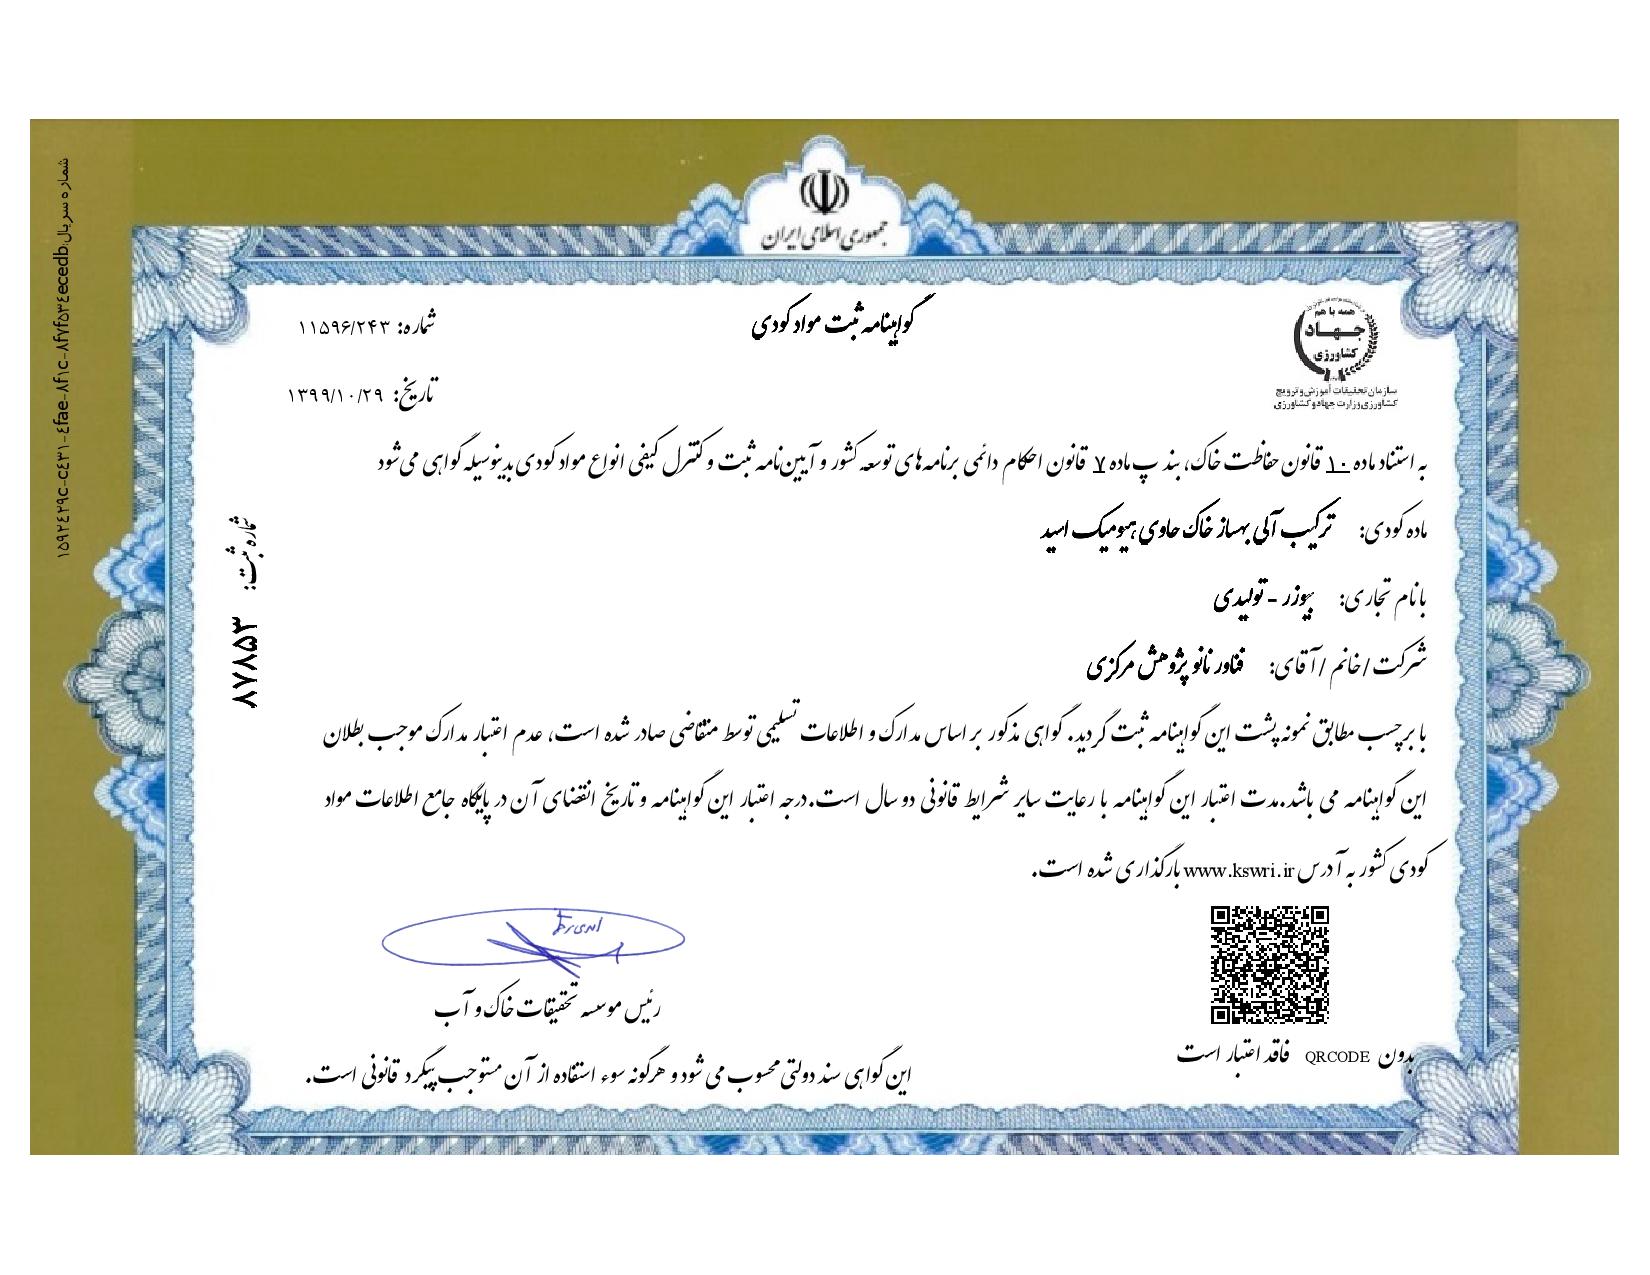 جمهوری اسلامی ایران
همه با هم
جهاد
کشاورزی
سازمان تحقیقات آموزش و ترویج
کشاورزی وزارت جهاد و کشاورزی
گواهینامه ثبت مواد کودی
شماره: ۱۱۵۹۶/۲۴۳
تاریخ: ۱۳۹۹/۱۰/۲۹
به استناد ماده ۱۰ قانون حفاظت خاک، بند پ ماده ۷ قانون احکام دائمی برنامه های توسعه کشور و آیین‌نامه ثبت و کنترل کیفی انواع مواد کودی بدینوسیله گواهی می‌شود
ماده کودی: ترکیب آلی بهساز خاک حاوی هیومیک اسید
با نام تجاری: بیوزر - تولیدی
شرکت/خانم/آقای: فناور نانو پژوهش مرکزی
با برچسب مطابق نمونه پشت این گواهینامه ثبت گردید. گواهی مذکور بر اساس مدارک و اطلاعات تسلیمی توسط متقاضی صادر شده است، عدم اعتبار مدارک موجب بطلان
این گواهینامه می باشد.مدت اعتبار این گواهینامه با رعایت سایر شرایط قانونی دو سال است.درجه اعتبار این گواهینامه و تاریخ انقضای آن در پایگاه جامع اطلاعات مواد
کودی کشور به آدرس www.kswri.ir بارگذاری شده است.
شماره ثبت: ۸۷۸۵۳
رئیس موسسه تحقیقات خاک و آب
بدون QRCODE فاقد اعتبار است
این گواهی سند دولتی محسوب می شود و هرگونه سوء استفاده از آن مستوجب پیگرد قانونی است.
شماره سریال:۱۵۹۲۴۲۹c-c۴۳۱-۴fae-۸f۱c-۸f۷f۵۳۴ecedb